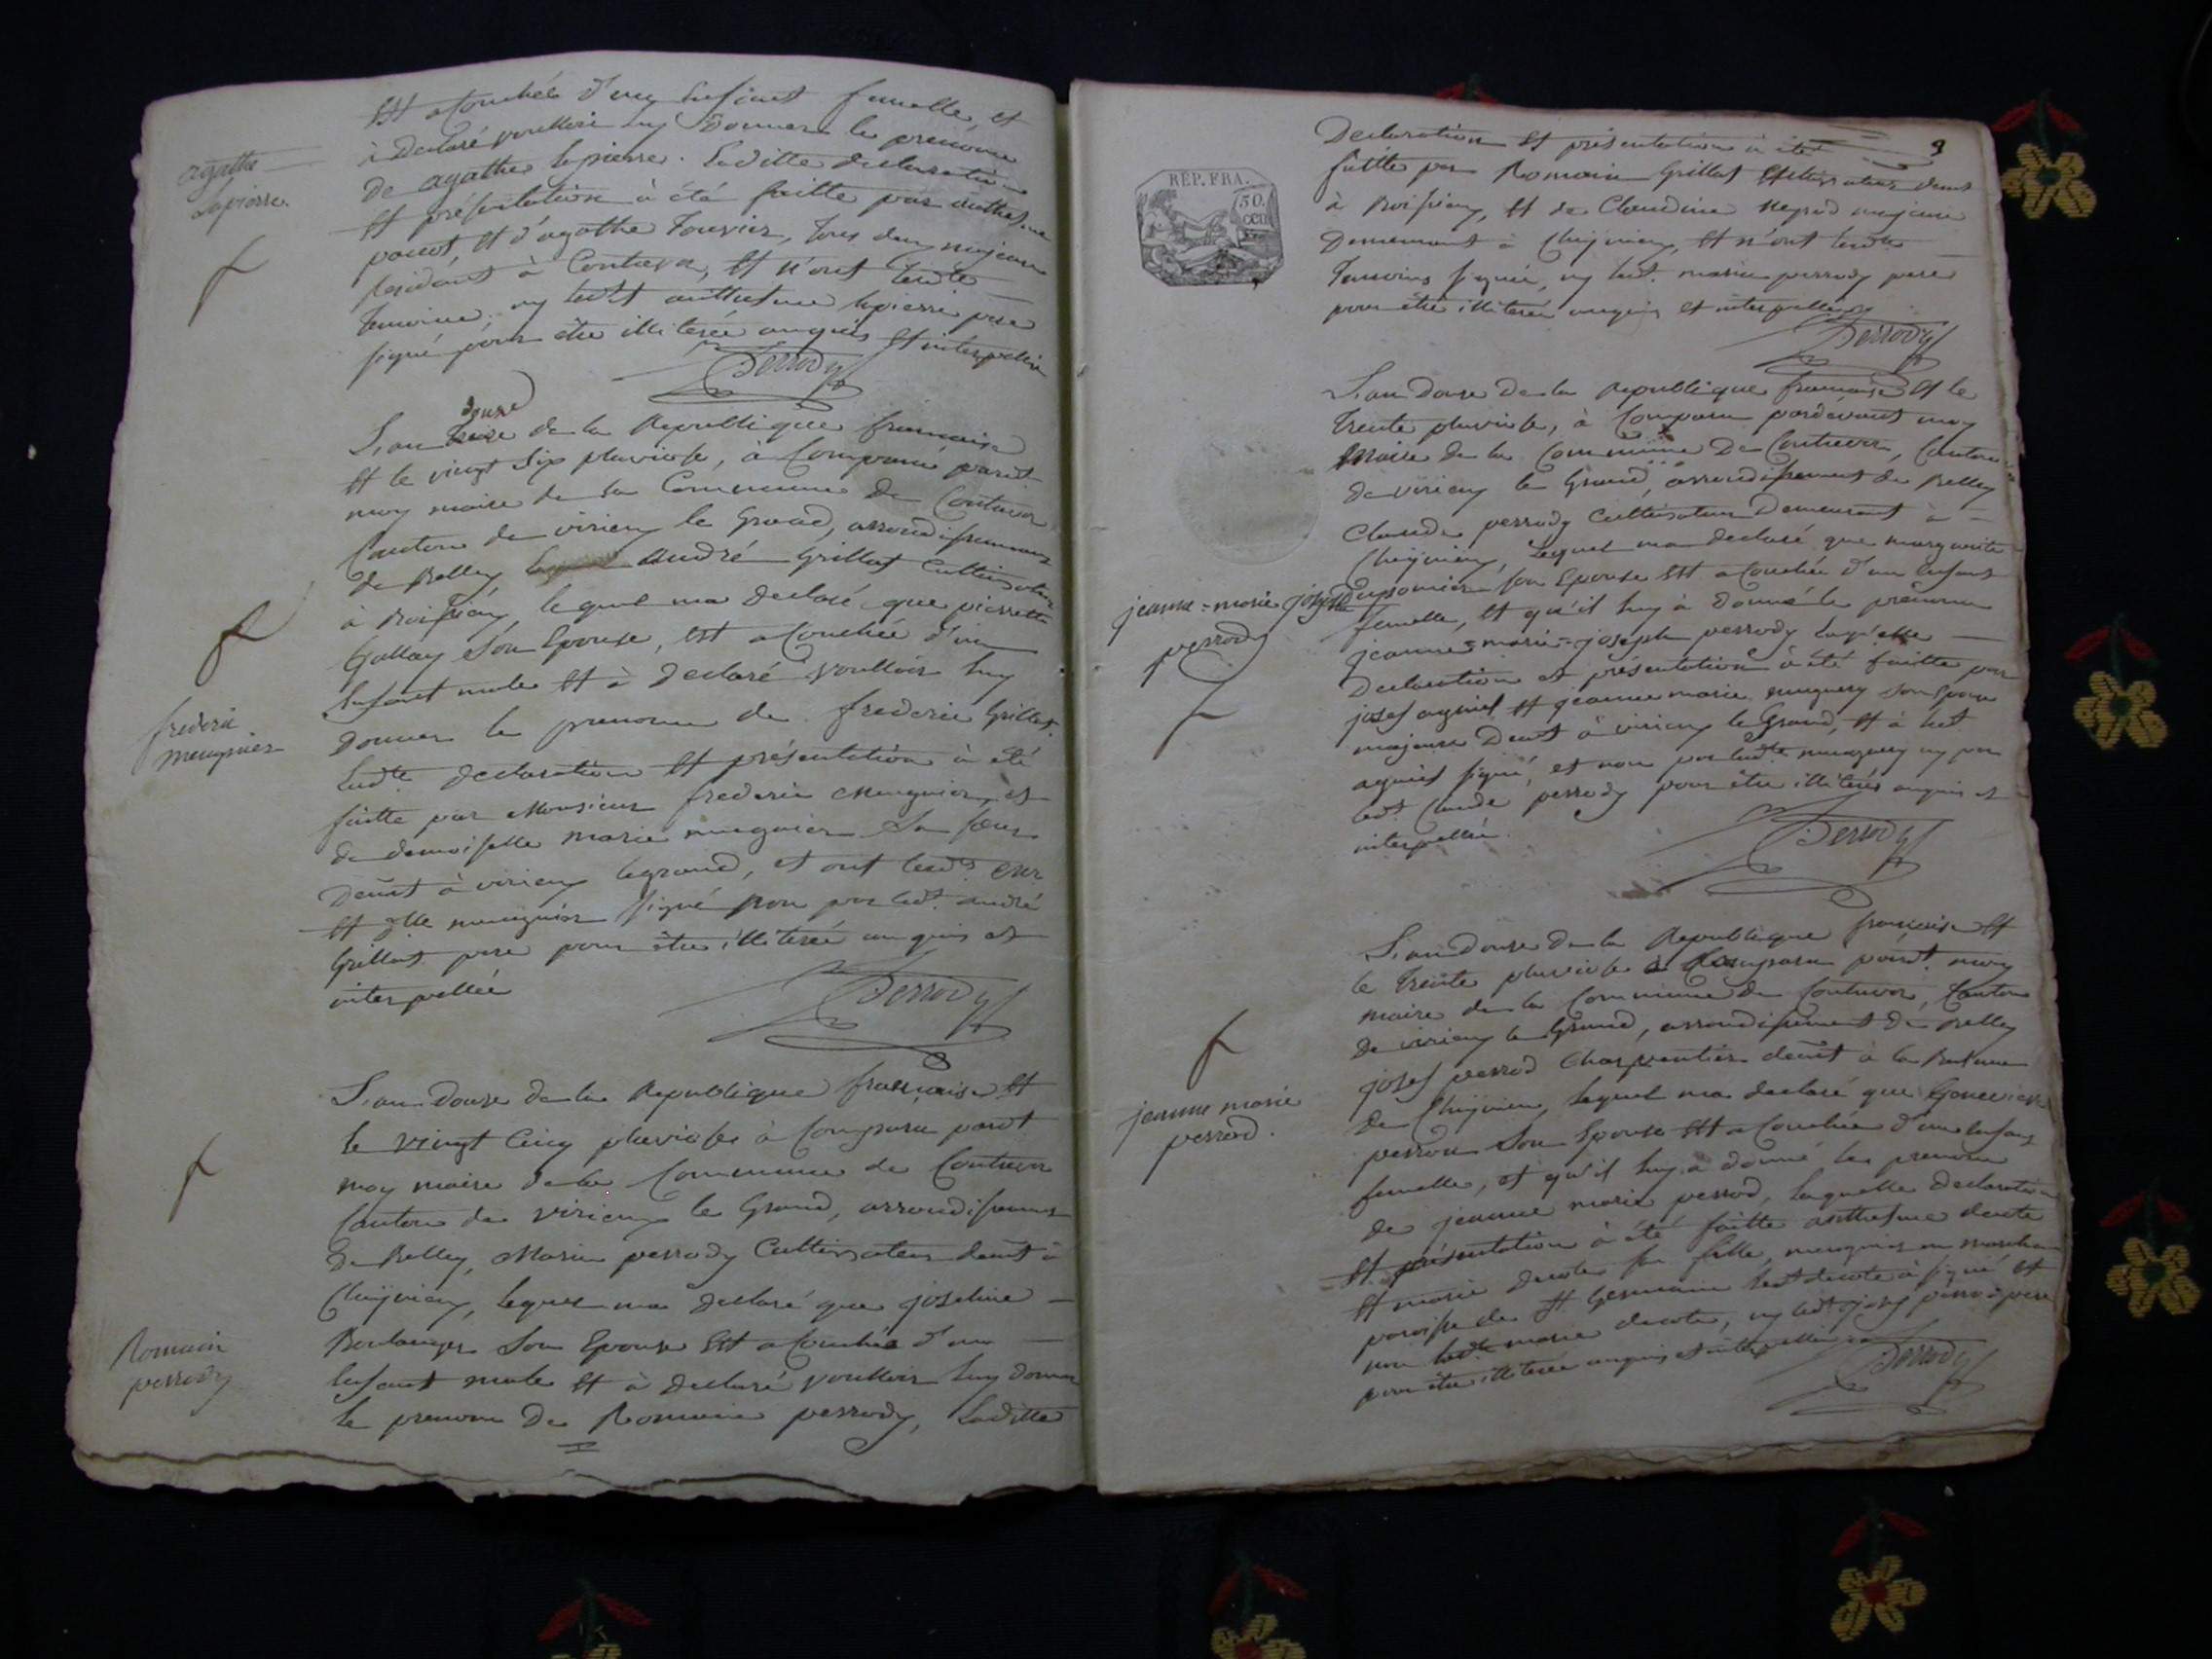 agathe
lapierre
Est acouchée d'un enfant femelle, et
à declaré voulloir luy donner le prenom
de agathe lapierre. Laditte declaration
Et présentation à été faitte par anthesme
et d'agathe touvier, tous deux majeurs
residant à Contrevoz, Et n'ont lesdts
temoins, ny ledt anthesme lapierre pere
signé pour être illiterée enquis Et interpellée
Perrody
douze
L'an de la Republique francaise
Et le vingt six pluviose, à Comparu pardt
moy maire de la Commune de Contrevoz
Canton de virieu le Grand, arrondissement
de Belley André Grillat Cultivateur
à lequel ma declaré que pierrette
Gallay son Epouse, est acouchée d'un
Enfant male Et à declaré voulloir luy
donner le prenom de frederic Grillat.
frederic
meugnier
Ladte declaration Et présentation à été
faitte par Monsieur frederic Meugnier, et
de demoiselle marie meugnier sa sœur
demt à virieu legrand, et ont lesdts
Et meugnier signé non pas ledt andré
Grillat pere pour être illiterée enquis et
interpellée
Perrody
L'an douze de la Republique française Et
le vingt Cinq pluviose à Comparu pardt
moy maire de la Commune de Contrevoz
Canton de virieu le Grand, arrondissement
de Belley, Marin perrody Cultivateur demt à
Cheignieu, lequel ma declaré que joseline
Boulanger son Epouse Est acouchée d'un
Romain
perrody
Enfant male Et à declaré voulloir luy donner
le prenom de Romain perrody, Laditte
3
REP. FRA.
50.
CEN
Declaration Et présentation à été
faitte par Romain Grillat Cultivateur demt
à Et de Claudine majeure
Demeurant à Cheignieu, Et n'ont lesdts
Temoins signée, ny ledt marin perrody pere
pour être illiterée enquis et interpellée
Perrody
L'an douze de la Republique francaise Et le
trente pluviose, à Comparu pardevant moy
Maire de la Commune De Contrevoz, Canton
de virieu le Grand, arrondissement de Belley
Claude perrody Cultivateur Demeurant à
Cheignieu, Lequel ma declaré que marguerite
jeanne=marie joseph
perrody
son Epouse Est acouchée d'un Enfant
femelle, Et qu'il luy à donné le prénom
jeanne=marie=joseph perrody laquelle
Declaration et présentation à été faitte par
josef Et jeanne marie son Epouse
majeurs Demt à virieu le Grand, Et à ledt
signé, et non pas ladte ny pas
ledt Claude perrody pour être illiterés enquis et
interpellée.
Perrody
L'an douze de la Republique française Et
le Trente pluviose à Comparu pardt moy
maire de la Commune de Contrevoz, Canton
de virieu le Grand, arrondissement de Belley
josef perrod Charpentier demt à la
de Cheignieu, lequel ma declaré que Genevieve
jeanne marie
perrod.
son Epouse Est acouchée d'un enfant
femelle, et qu'il luy a donné le prenom
de jeanne marie perrod, laquelle Declaration
Et présentation à été faitte anthesme decote
Et marie decote sa fille,
paroisse de St Germain ledt decote à signé Et
non ladte marie decote, ny ledt josef perrod pere
pour être illiterée enquis et interpellée
Perrody